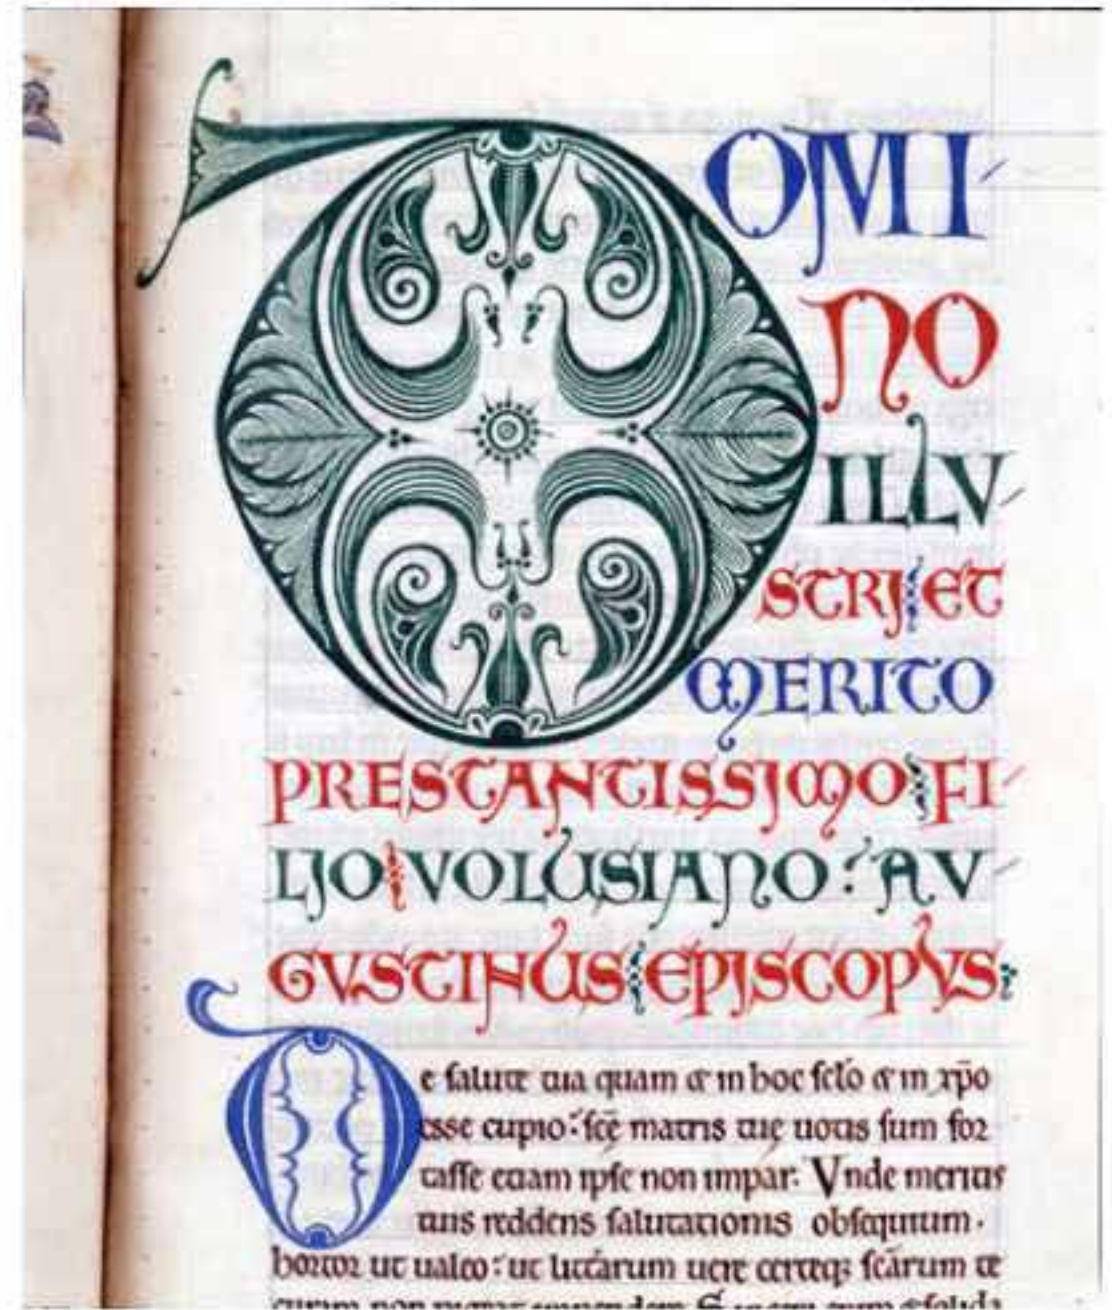 DOMI
NO
ILLV
STRI ET
MERITO
PRESTANTISSIMO FI
LIO VOLUSIANO : AV
GVSTINUS EPISCOPVS
De salute tua quam & in hoc sclo & in xpo
esse cupio : sce matris tue uotis sum for
tasse etiam ipse non impar. Vnde meritis
tuis reddens salutationis obsequium.
hortor ut ualeo : ut litterarum uere certeq; scarum te